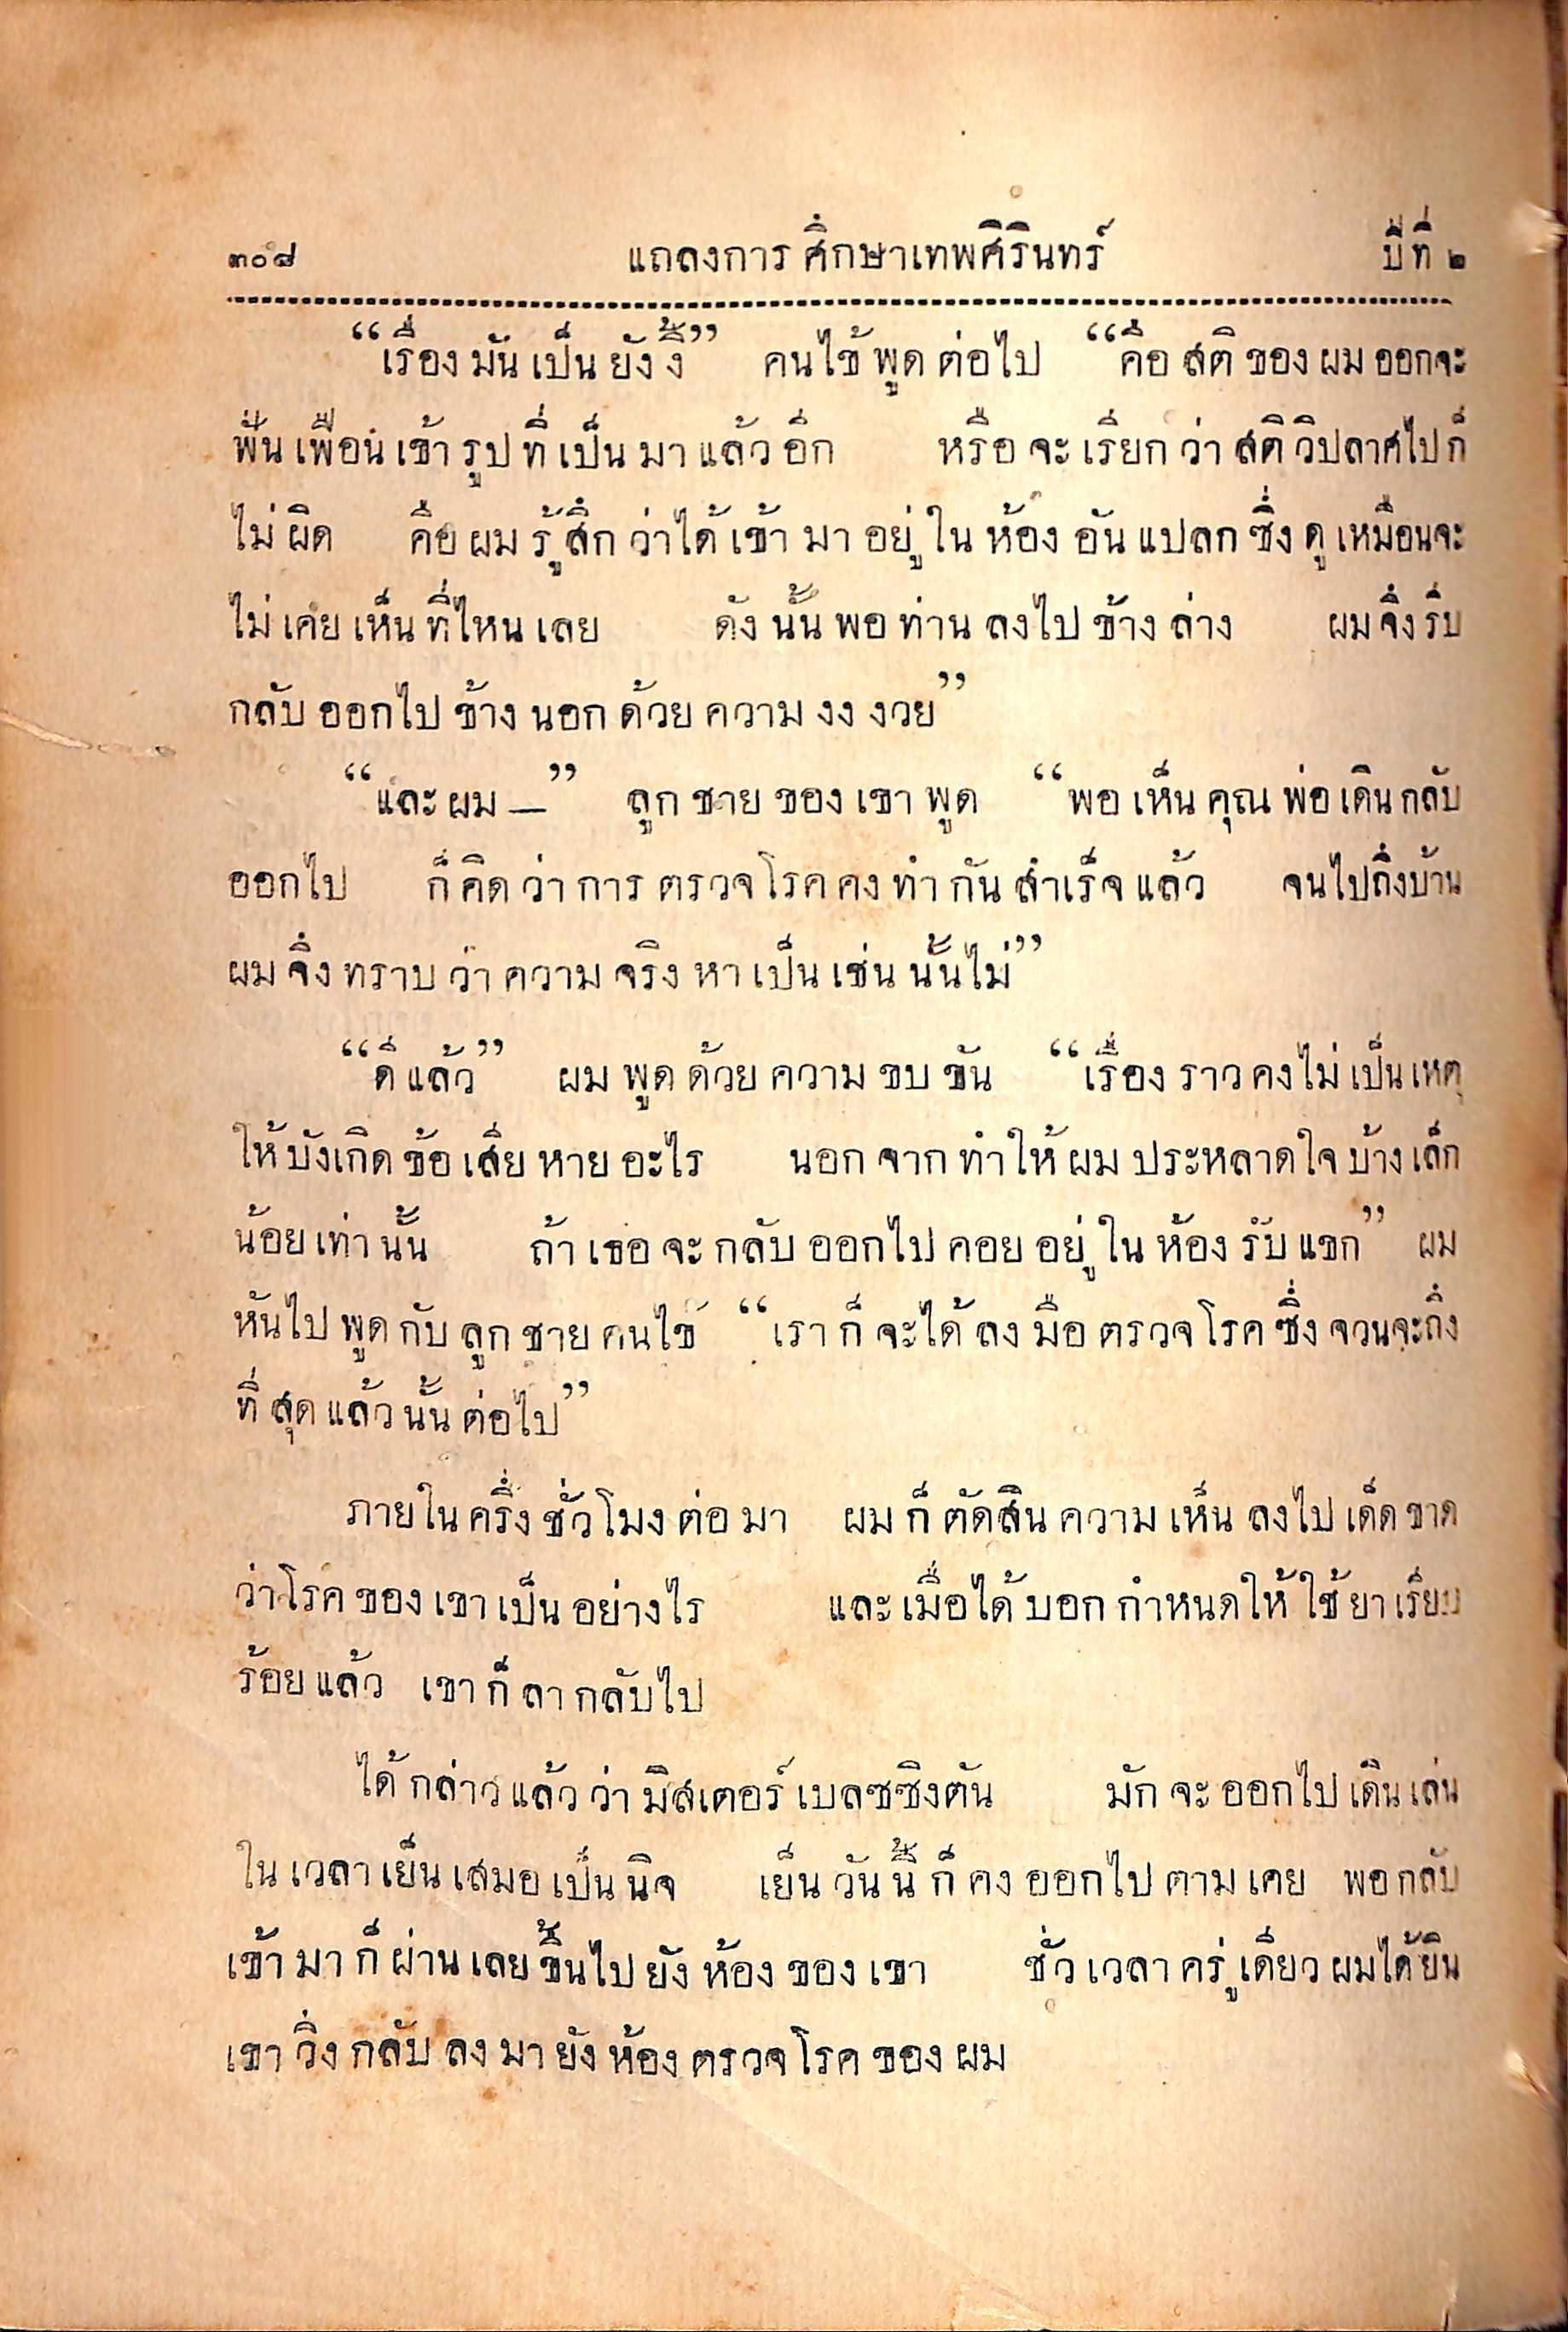 ๓๐๘ แถลงการศึกษาเทพศิรินทร์ ปีที่ ๒
“เรื่องมันเป็นยังงี้” คนไข้พูดต่อไป “คือสติของผมออกจะ
ฟั่นเฟือนเข้ารูปที่เป็นมาแล้วอีก หรือจะเรียกว่าสติวิปลาศไปก็
ไม่ผิด คือผมรู้สึกว่าได้เข้ามาอยู่ในห้องอันแปลกซึ่งดูเหมือนจะ
ไม่เคยเห็นที่ไหนเลย ดังนั้นพอท่านลงไปข้างล่าง ผมจึงรีบ
กลับออกไปข้างนอกด้วยความงงงวย”
“และผม—” ลูกชายของเขาพูด “พอเห็นคุณพ่อเดินกลับ
ออกไป ก็คิดว่าการตรวจโรคคงทำกันสำเร็จแล้ว จนไปถึงบ้าน
ผมจึงทราบว่าความจริงหาเป็นเช่นนั้นไม่”
“ดีแล้ว” ผมพูดด้วยความขบขัน “เรื่องราวคงไม่เป็นเหตุ
ให้บังเกิดข้อเสียหายอะไร นอกจากทำให้ผมประหลาดใจบ้างเล็ก
น้อยเท่านั้น ถ้าเธอจะกลับออกไปคอยอยู่ในห้องรับแขก” ผม
หันไปพูดกับลูกชายคนไข้ “เราก็จะได้ลงมือตรวจโรคซึ่งจวนจะถึง
ที่สุดแล้วนั้นต่อไป”
ภายในครึ่งชั่วโมงต่อมา ผมก็ตัดสินความเห็นลงไปเด็ดขาด
ว่าโรคของเขาเป็นอย่างไร และเมื่อได้บอกกำหนดให้ใช้ยาเรียบ
ร้อยแล้ว เขาก็ลากลับไป
ได้กล่าวแล้วว่ามิสเตอร์เบลซซิงตัน มักจะออกไปเดินเล่น
ในเวลาเย็นเสมอเป็นนิจ เย็นวันนี้ก็คงออกไปตามเคย พอกลับ
เข้ามาก็ผ่านเลยขึ้นไปยังห้องของเขา ชั่วเวลาครู่เดียวผมได้ยิน
เขาวิ่งกลับลงมายังห้องตรวจโรคของผม